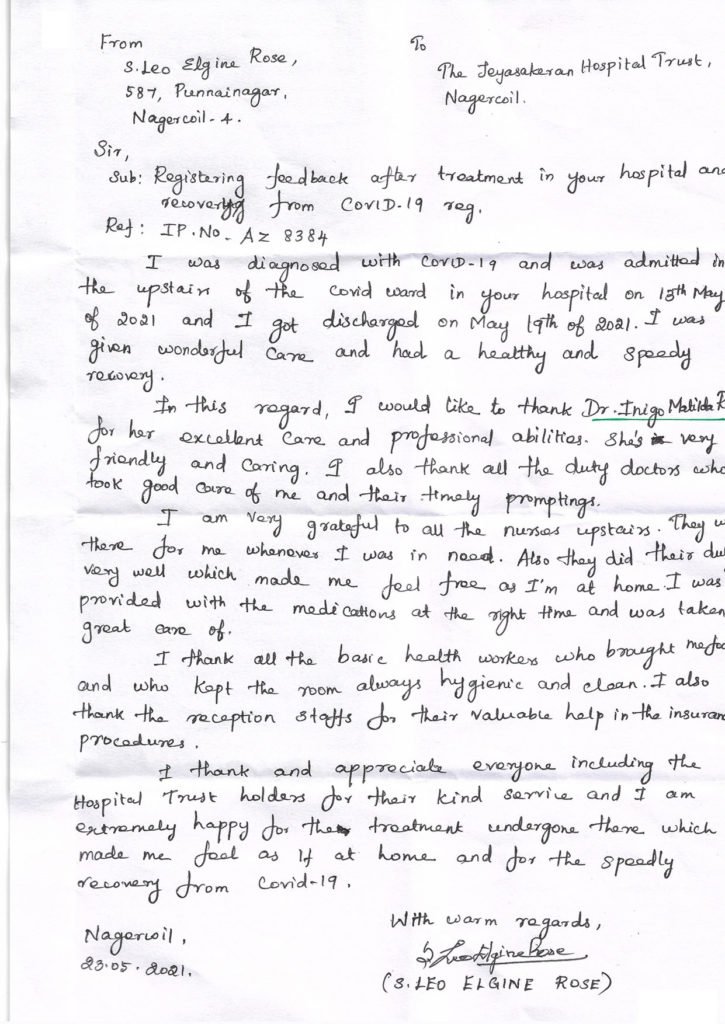 From
S. Leo Elgine Rose,
587, Punnainagar,
Nagercoil - 4.
To
The Jeyasakeran Hospital Trust,
Nagercoil.
Sir,
Sub: Registering feedback after treatment in your hospital and
recovery from COVID-19 reg.
Ref: IP.No. AZ 8384
I was diagnosed with COVID-19 and was admitted in
the upstairs of the covid ward in your hospital on 13th May
of 2021 and I got discharged on May 19th of 2021. I was
given wonderful care and had a healthy and speedy
recovery.
In this regard, I would like to thank Dr. Inigo Matilda
for her excellent care and professional abilities. She's very
friendly and caring. I also thank all the duty doctors who
took good care of me and their timely promptings.
I am very grateful to all the nurses upstairs. They
there for me whenever I was in need. Also they did their
very well which made me feel free as I'm at home. I was
provided with the medications at the right time and was taken
great care of.
I thank all the basic health workers who brought me
and who kept the room always hygienic and clean. I also
thank the reception staffs for their valuable help in the insuran
procedures.
I thank and appreciate everyone including the
Hospital Trust holders for their kind service and I am
extremely happy for the treatment undergone there which
made me feel as if at home and for the speedly
recovery from Covid-19.
Nagercoil,
23.05.2021.
With warm regards,
S. Leo Elgine Rose
(S. LEO ELGINE ROSE)